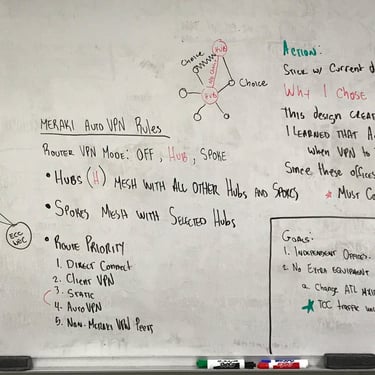 HUB
Choice
No Choice
HUB
Choice
MERAKI AUTO VPN RULES
ROUTER VPN MODE: OFF, HUB, SPOKE
• HUBS (H) MESH WITH ALL OTHER HUBS AND SPOKES
• SPOKES MESH WITH SELECTED HUBS
• ROUTE PRIORITY
1. DIRECT CONNECT
2. CLIENT VPN
3. STATIC
4. AUTO VPN
5. NON-MERAKI VPN PEERS
ECC
ACTION:
STICK W/ CURRENT d
WHY I CHOSE
THIS DESIGN CREAT
I LEARNED THAT A
WHEN VPN TO
SINCE THESE OFFICES
* MUST CO
GOALS:
1. INDEPENDENT OFFICES.
2. NO EXTRA EQUIPMENT
a. CHANGE ATL
TCC TRAFFIC